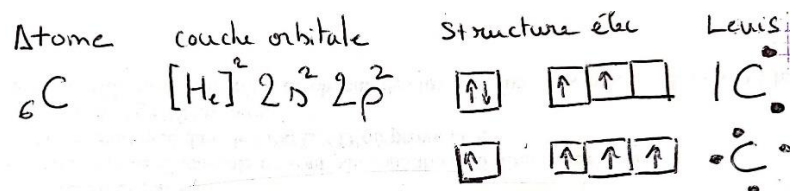 Atome couche orbitale Structure élec Lewis
₆C [He]² 2s² 2p² ↑↓ ↑ ↑ |C
↑ ↑ ↑ ↑ C